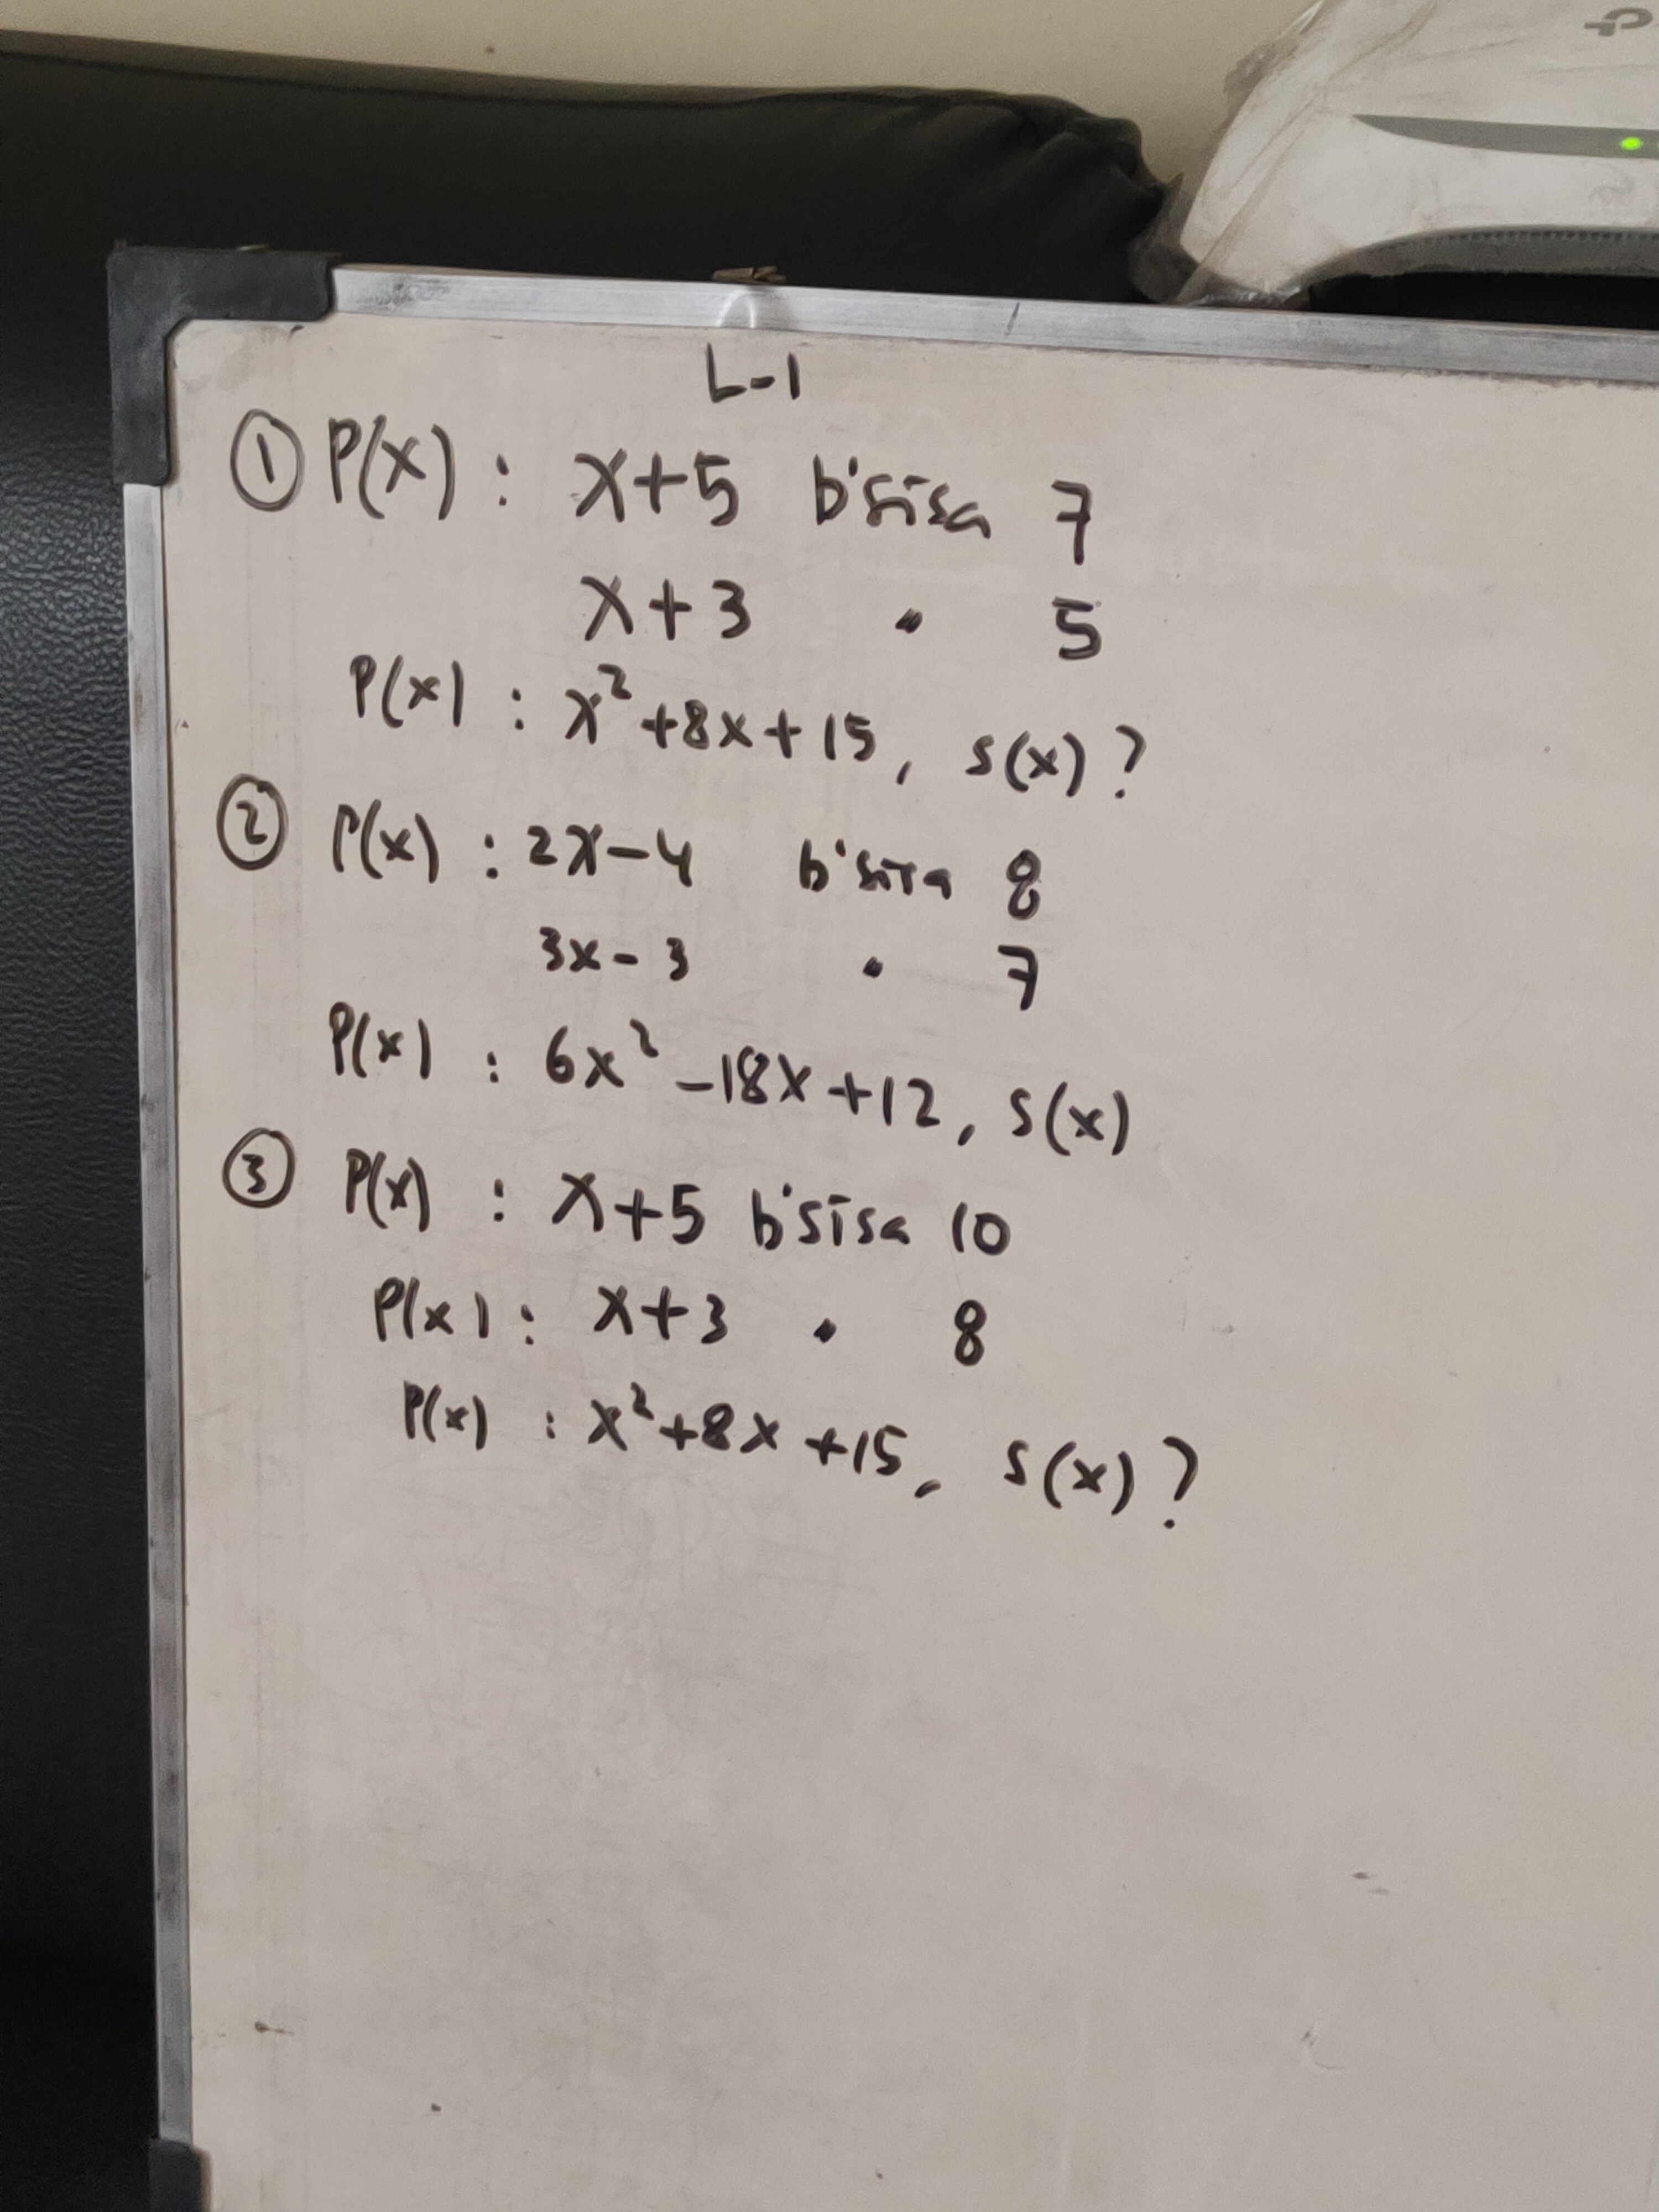 L-1
① P(x) : x+5 b'sisa 7
x+3 " 5
P(x) : x²+8x+15, s(x)?
② P(x) : 2x-4 b'sisa 8
3x-3 " 7
P(x) : 6x²-18x+12, s(x)
③ P(x) : x+5 b'sisa 10
P(x) : x+3 " 8
P(x) : x²+8x+15, s(x)?